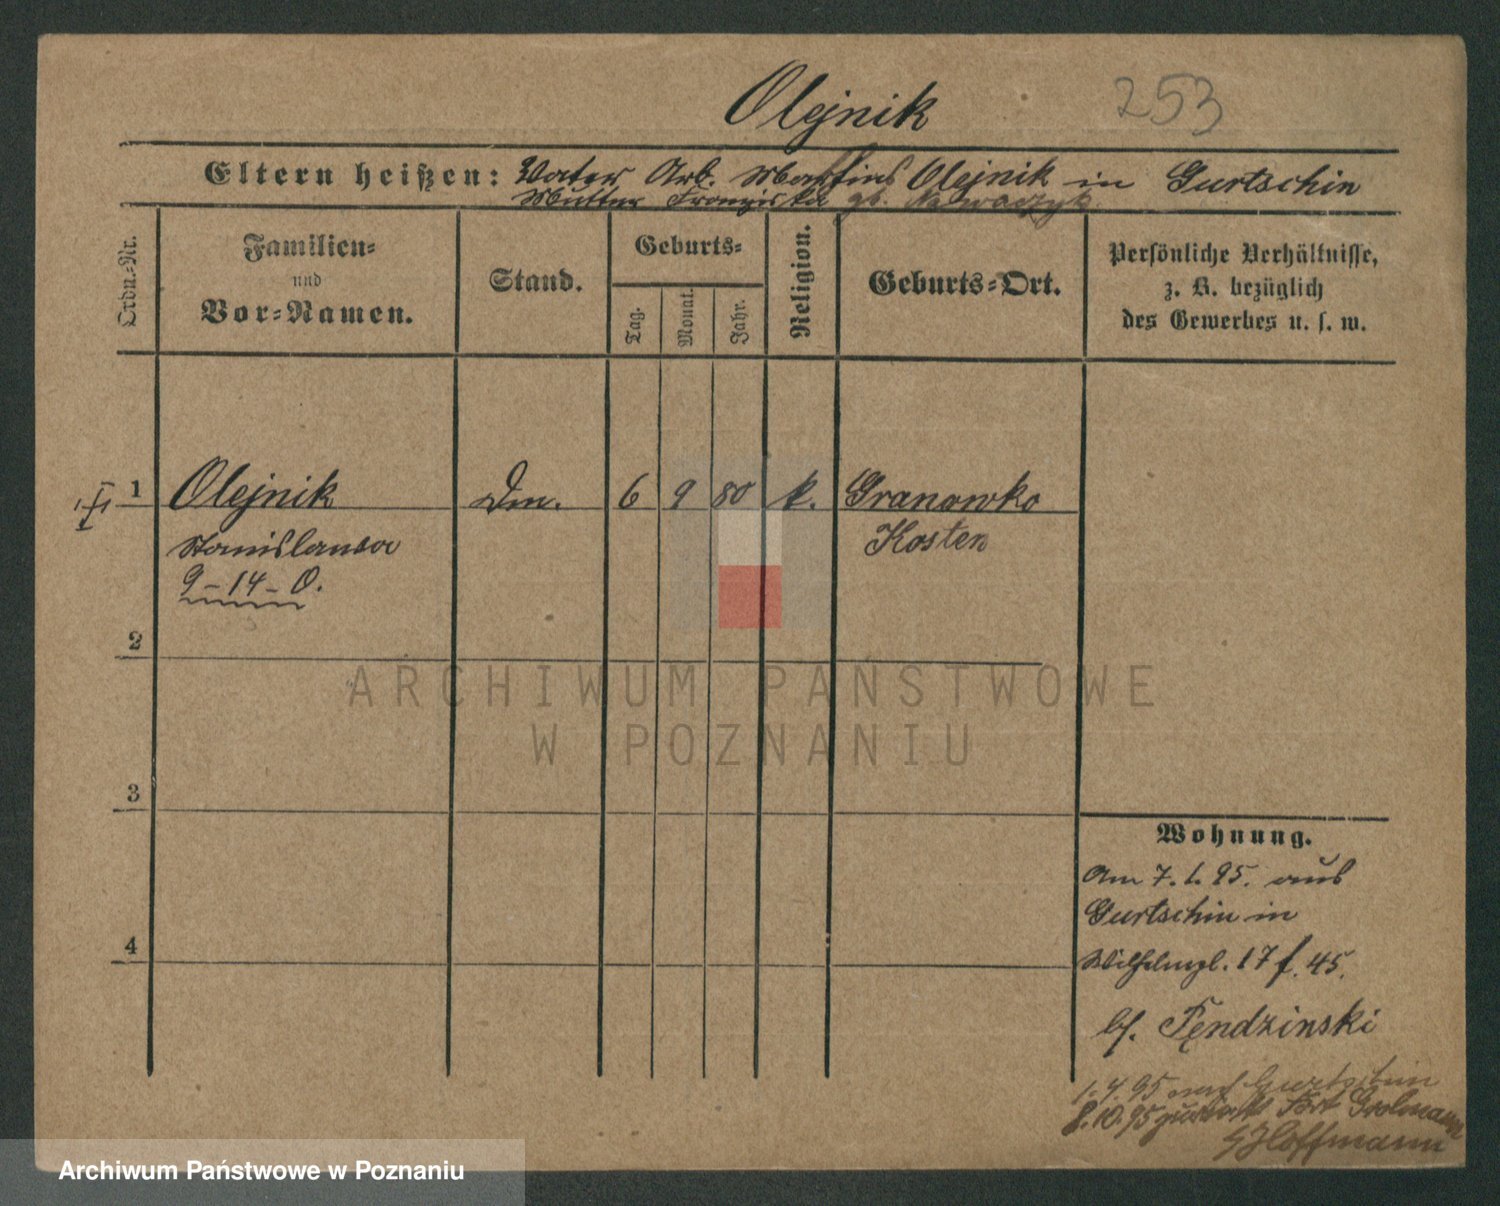 Olejnik 253
Eltern heißen: Vater Arb. Martin Olejnik in Gurtschin
Mutter Franziska gb. Nawaczyk
Ordn.-Nr.
Familien-
und
Vor-Namen.
Stand.
Geburts-
Tag.
Monat.
Jahr.
Religion.
Geburts-Ort.
Persönliche Verhältnisse,
z. B. bezüglich
des Gewerbes u. s. w.
1 Olejnik Dm. 6 9 80 k. Granowko
Stanislawa Kosten
9-14-O.
2
3
4
Wohnung.
Am 7.1.95. aus
Gurtschin in
Wilhelmpl. 17 f. 45.
b/. Fendzinski
1.4.95 nach Gurtschin
8.10.95 zurück Fort Grolmann
Hoffmann
ARCHIWUM PAŃSTWOWE
W POZNANIU
Archiwum Państwowe w Poznaniu